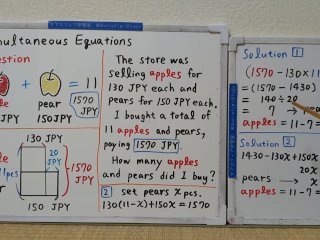 multaneous Equations
estion
+ = 11
1570
JPY
le pear
JPY 150JPY
130 JPY
20
JPY
1570
JPY
150 JPY
The store was
selling apples for
130 JPY each and
pears for 150 JPY each.
I bought a total of
11 apples and pears,
paying 1570 JPY.
How many apples
and pears did I buy?
2 set pears x pcs.
130(11-x)+150x=1570
Solution 1
(1570-130×11
=(1570-1430)
= 140÷20
= 7
apples = 11-7=
Solution 2
1430-130x+150x
20x
pears → x
apples = 11-7=